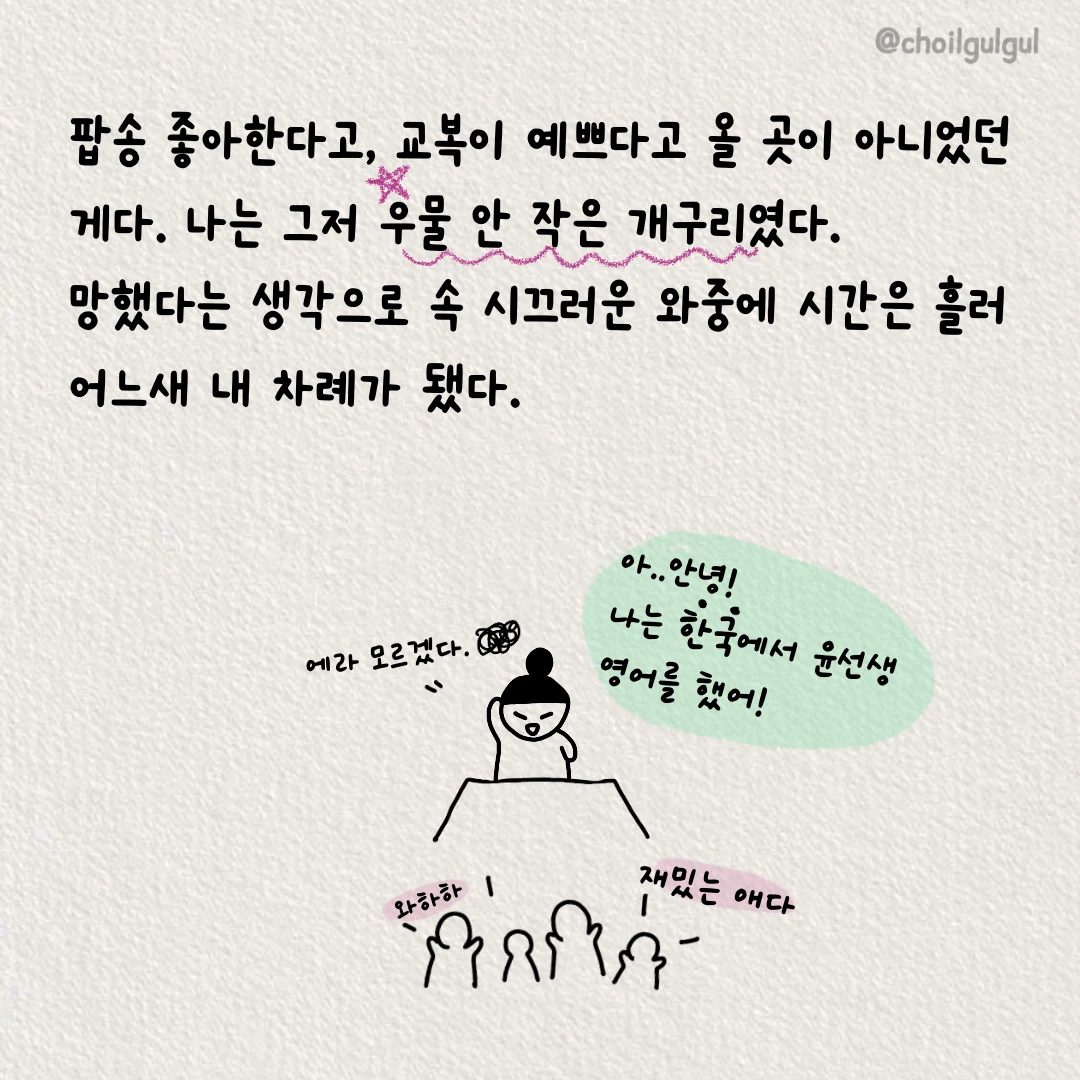 @choilgulgul
팝송 좋아한다고, 교복이 예쁘다고 올 곳이 아니었던
게다. 나는 그저 우물 안 작은 개구리였다.
망했다는 생각으로 속 시끄러운 와중에 시간은 흘러
어느새 내 차례가 됐다.
아..안녕!
나는 한국에서 윤선생
영어를 했어!
에라 모르겠다.
와하하
재밌는 애다